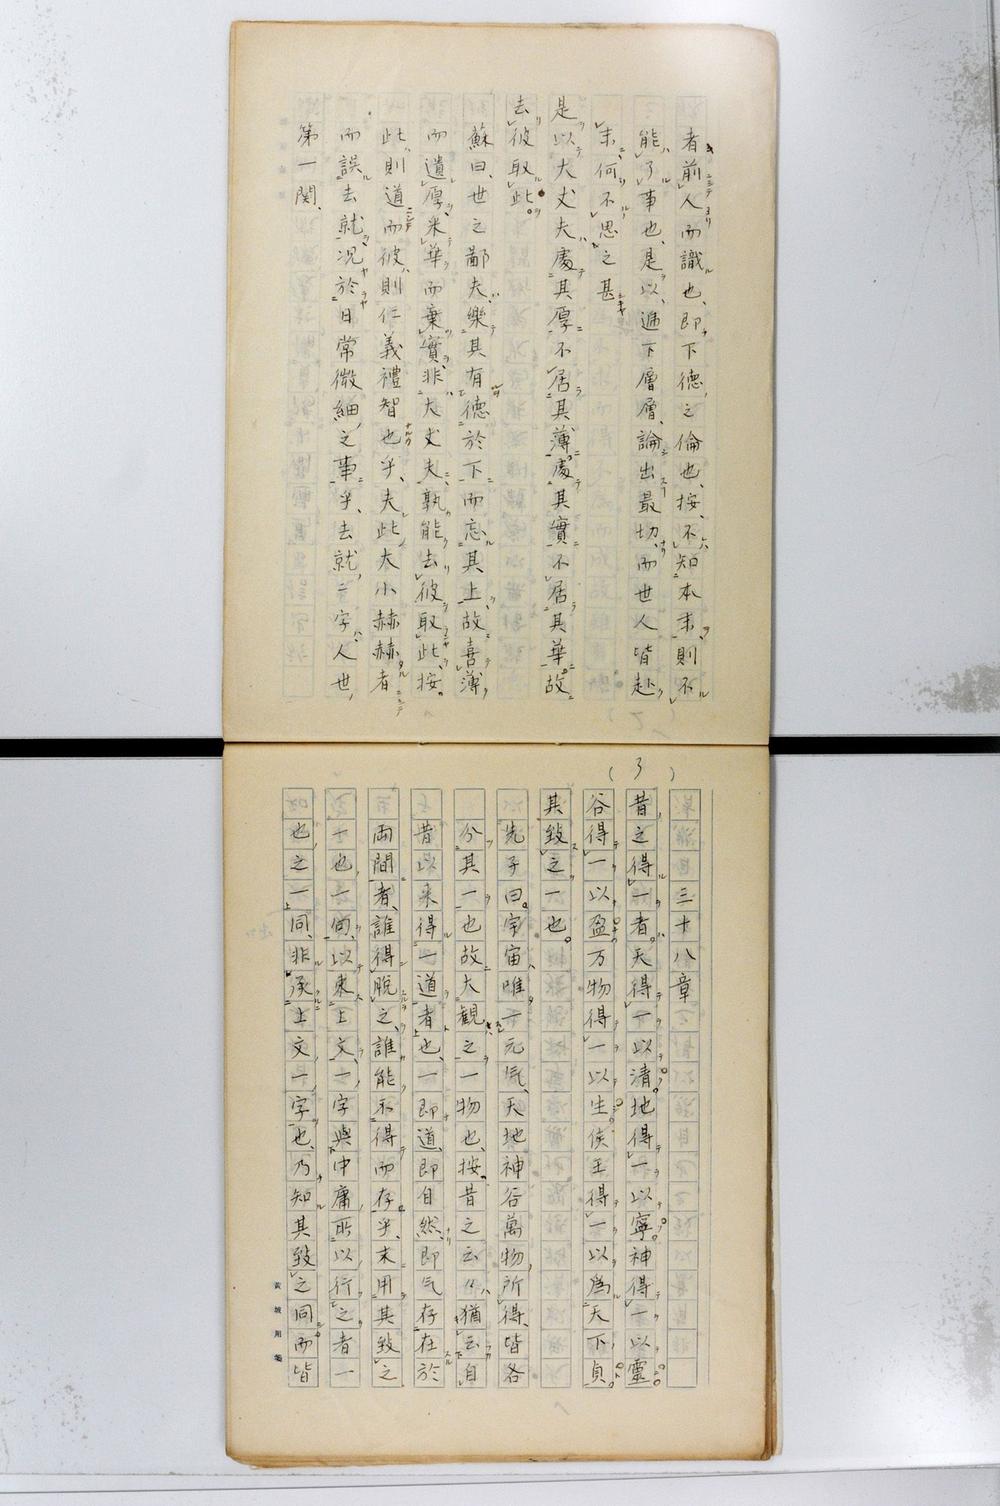 者前人而識也、即下德之倫也、按、不知本末則不
能了事也、是以、逓下層層、論出最切、而世人皆赴
末、何不思之甚
是以大丈夫處其厚不居其薄處其實不居其華故
去彼取此。
蘇曰、世之鄙夫樂其有德於下而忘其上故喜薄
而遺厚、米華而棄實、非大丈夫、孰能去彼取此、按。
此則道而彼則仁義禮智也乎、夫此大小赫赫者
而誤去就、况於日常微細之事乎、去就二字、人世
第一関、
(3)
三十八章
昔之得一者。天得一以清。地得一以寧。神得一以靈。
谷得一以盈。万物得一以生。侯王得一以為天下貞。
其致之一也。
先子曰。宇宙唯一元気、天地神谷萬物所得、皆各
分其一也故大観之一物也、按。昔之云〻猶云自
昔以来得一道者也、一即道、即自然、即气存在於
兩間者、誰得脱之、誰能不得而存乎、末用其致之
一也一句、以束上文一字與中庸所以行之者一
也之一同、非承上文一字也、乃知其致之同而皆
黄坡用箋